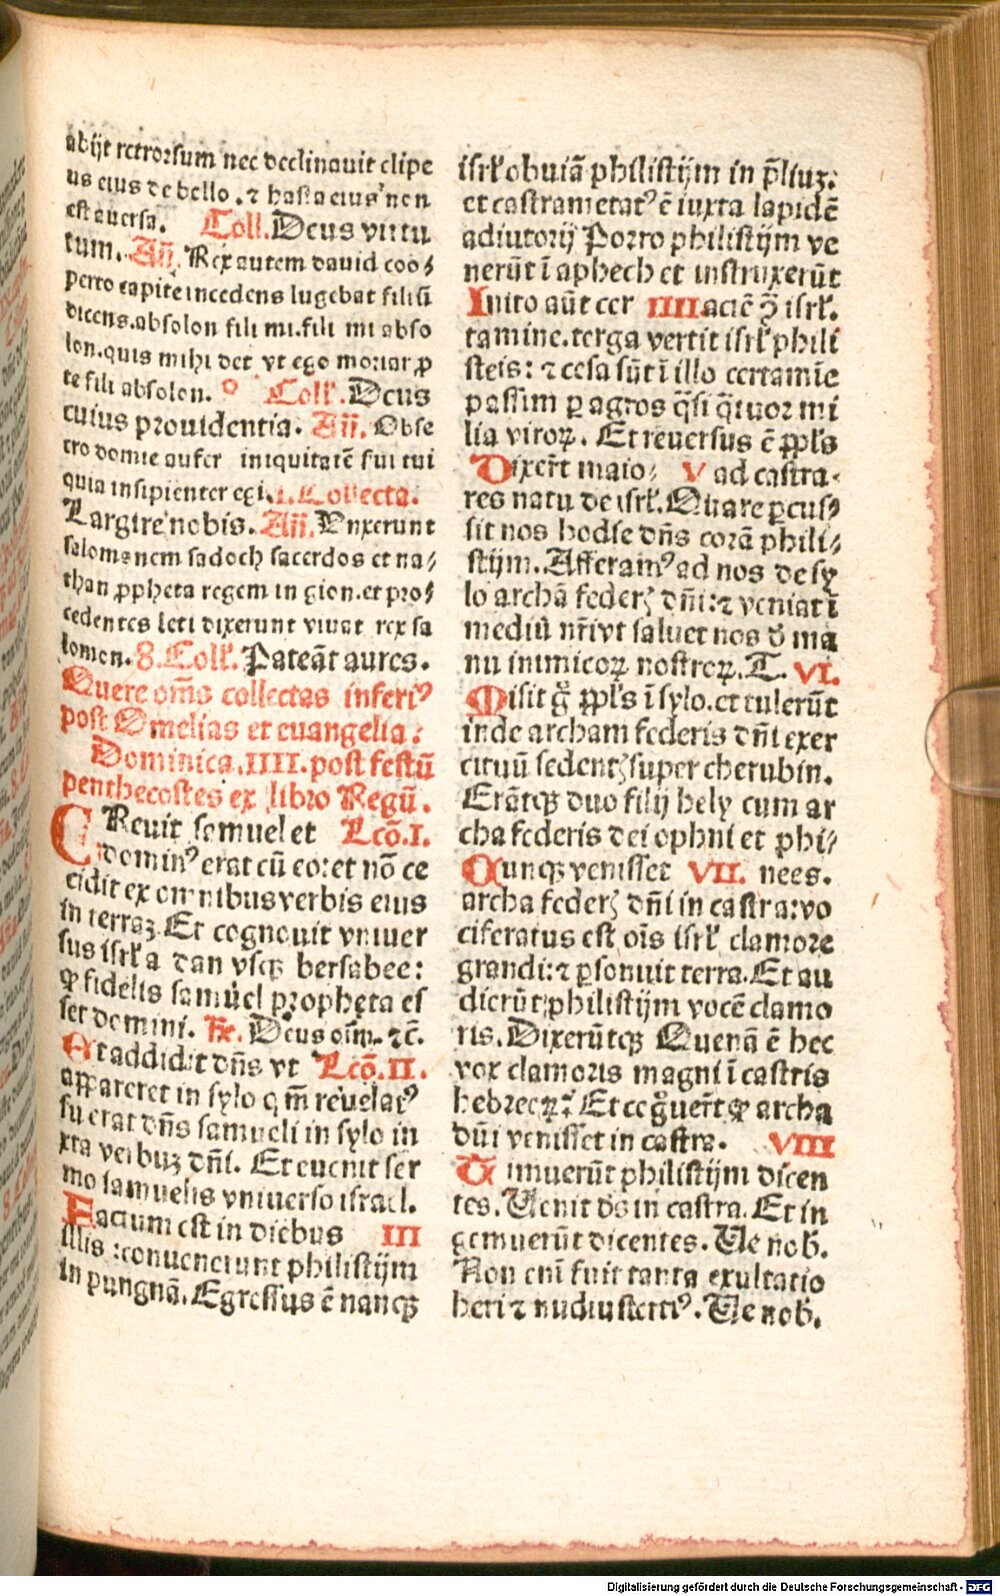 abijt retrorsum nec declinauit clipe
us eius de bello . ⁊ hasta eius non
est auersa. Coll. Deus virtu
tum. Añ. Rex autem dauid coo⸗
perto capite incedens lugebat filiũ
dicens. absolon fili mi. fili mi abso
lon. quis mihi det vt ego moriar ꝓ
te fili absolon. Coll'. Deus
cuius prouidentia. Añ. Obse
cro domie aufer iniquitatẽ sui tui
quia insipienter egi. Collecta.
Largire nobis. Añ. Unxerunt
salomonem sadoch sacerdos et na⸗
than ꝓpheta regem in gion. et pro⸗
cedentes leti dixerunt viuat rex sa
lomon. 8. Coll'. Pateãt aures.
Quere om̃s collectas inferiꝰ
post Omelias et euangelia.
Dominica. IIII. post festũ
penthecostes ex libro Regũ.
CReuit samuel et Lcõ. I.
dominꝰ erat cũ eo: et nõ ce
cidit ex omnibus verbis eius
in terraꝫ. Et cognouit vniuer
sus isrl' a dan vsqꝫ bersabee:
ꝙ fidelis samuel propheta es
set domini. ℟. Deus oĩm. ⁊c̃.
Et addidit dñs vt Lcõ. II.
appareret in sylo qm̃ reuelatꝰ
fuerat dñs samueli in sylo iu
xta verbuꝫ dñi. Et euenit ser
mo samuelis vniuerso israel.
Factum est in diebus III
illis : conuenerunt philistijm
in pungnã. Egressus ẽ nanqꝫ
isrl' obuiã philistijm in p̃liuꝫ:
et castrametatꝰ ẽ iuxta lapidẽ
adiutorij Porro philistijm ve
nerũt ĩ aphech et instruxerũt
Inito aũt cer IIII aciẽ ꝯ̃ isrl'.
tamine. terga vertit isrl' phili
steis: ⁊ cesa sũt ĩ illo certamĩe
passim ꝑ agros q̃si q̃tuor mi
lia viroꝝ. Et reuersus ẽ ppl's
Dixerũt maio⸗ V ad castra.
res natu de isrl'. Quare ꝑcus⸗
sit nos hodie dñs corã phili⸗
stijm. Afferamꝰ ad nos de sy
lo archã federꝭ dñi: ⁊ veniat ĩ
mediũ nr̃i vt saluet nos d̓ ma
nu inimicoꝝ nostroꝝ. T. VI.
Misit g̃ ppl's ĩ sylo. et tulerũt
inde archam federis dñi exer
cituũ sedentꝭ super cherubin.
Erãtqꝫ duo filij hely cum ar
cha federis dei ophni et phi⸗
Cunqꝫ venisset VII. nees.
archa federꝭ dñi in castra: vo
ciferatus est oĩs isrl' clamore
grandi: ⁊ ꝑsonuit terra. Et au
dierũt philistijm vocẽ clamo
ris. Dixerũtqꝫ Quenã ẽ hec
vox clamoris magni ĩ castris
hebreoꝝ: Et cog̃uerũt ꝙ archa
dñi venisset in castra. VIII
Timuerũt philistijm dicen
tes. Uenit ds̃ in castra. Et in
gemuerũt dicentes. Ue nob̓.
Non enĩ fuit tanta exultatio
heri ⁊ nudiustertiꝰ. Ue nob̓.
Digitalisierung gefördert durch die Deutsche Forschungsgemeinschaft - DFG